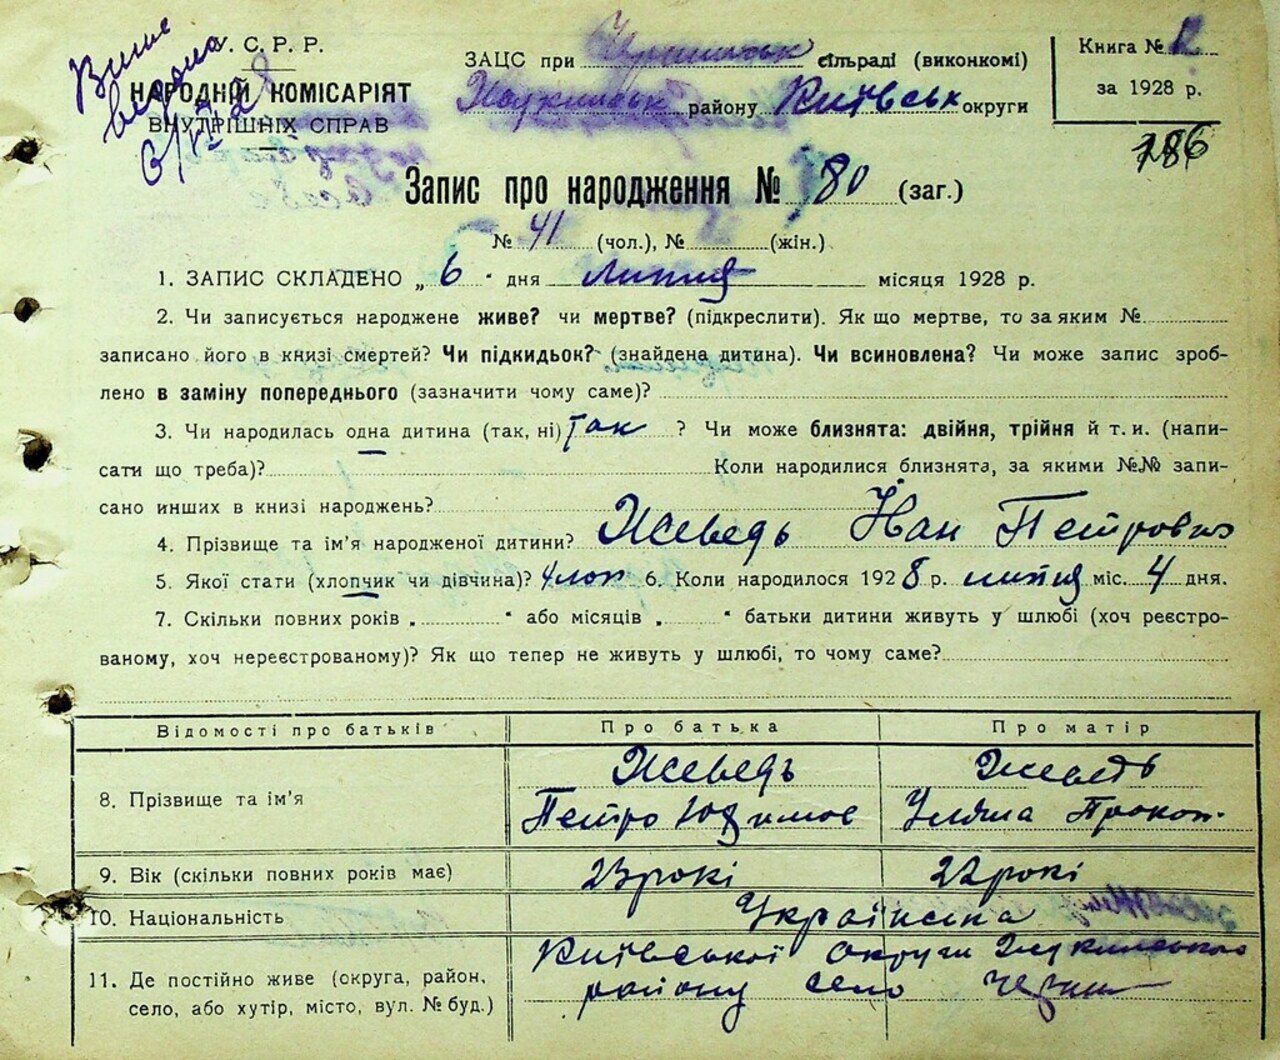 Випис
видана
6/VII 28
У. С. Р. Р.
НАРОДНІЙ КОМІСАРІЯТ
ВНУТРІШНІХ СПРАВ
ЗАЦС при сільраді (виконкомі)
району Київськ округи
Книга №
за 1928 р.
186
Запис про народження № 80 (заг.)
№ 41 (чол.), № (жін.)
1. ЗАПИС СКЛАДЕНО „ 6 " дня липня місяця 1928 р.
2. Чи записується народжене живе? чи мертве? (підкреслити). Як що мертве, то за яким №
записано його в книзі смертей? Чи підкидьок? (знайдена дитина). Чи всиновлена? Чи може запис зроб-
лено в заміну попереднього (зазначити чому саме)?
3. Чи народилась одна дитина (так, ні) так ? Чи може близнята: двійня, трійня й т. и. (напи-
сати що треба)? Коли народилися близнята, за якими №№ запи-
сано инших в книзі народжень?
4. Прізвище та ім'я народженої дитини? Жеведь Іван Петрович
5. Якої стати (хлопчик чи дівчина)? хлоп 6. Коли народилося 1928 р. липня міс. 4 дня.
7. Скільки повних років „ " або місяців „ " батьки дитини живуть у шлюбі (хоч реєстро-
ваному, хоч нереєстрованому)? Як що тепер не живуть у шлюбі, то чому саме?
Відомості про батьків Про батька Про матір
Жеведь Жеведь
8. Прізвище та ім'я
Петро Юхимов Уляна Прокоп.
9. Вік (скільки повних років має) 23 рокі 22 рокі
10. Національність Українська
Київської Округи
11. Де постійно живе (округа, район,
району село
село, або хутір, місто, вул. № буд.)